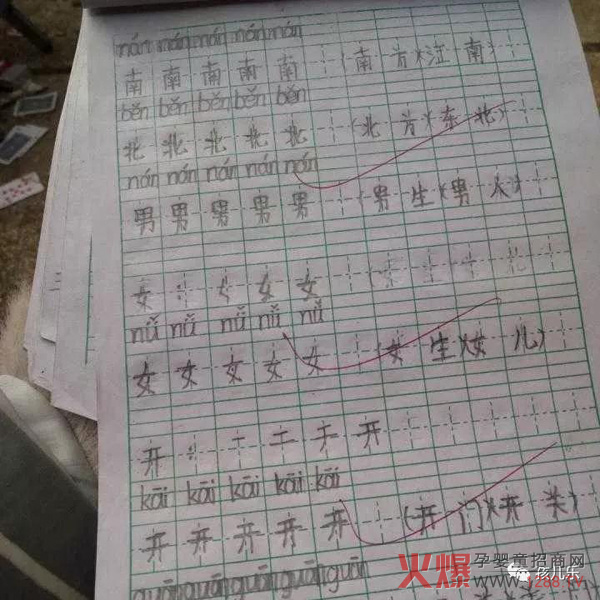 nán nán nán nán nán
南 南 南 南 南 (南 方)(江 南)
běn běn běn běn běn
北 北 北 北 北 (北 方)(东 北)
nán nán nán nán nán
男 男 男 男 男 (男 生)(男 人)
女 女 女 女
nǚ nǚ nǚ nǚ nǚ
女 女 女 女 女 (女 生)(女 儿)
开 一 二 于 开
kāi kāi kāi kāi kāi
开 开 开 开 开 (开 门)(开 关)
guān guān guān guān guān
火爆孕婴童招商网
孩儿乐